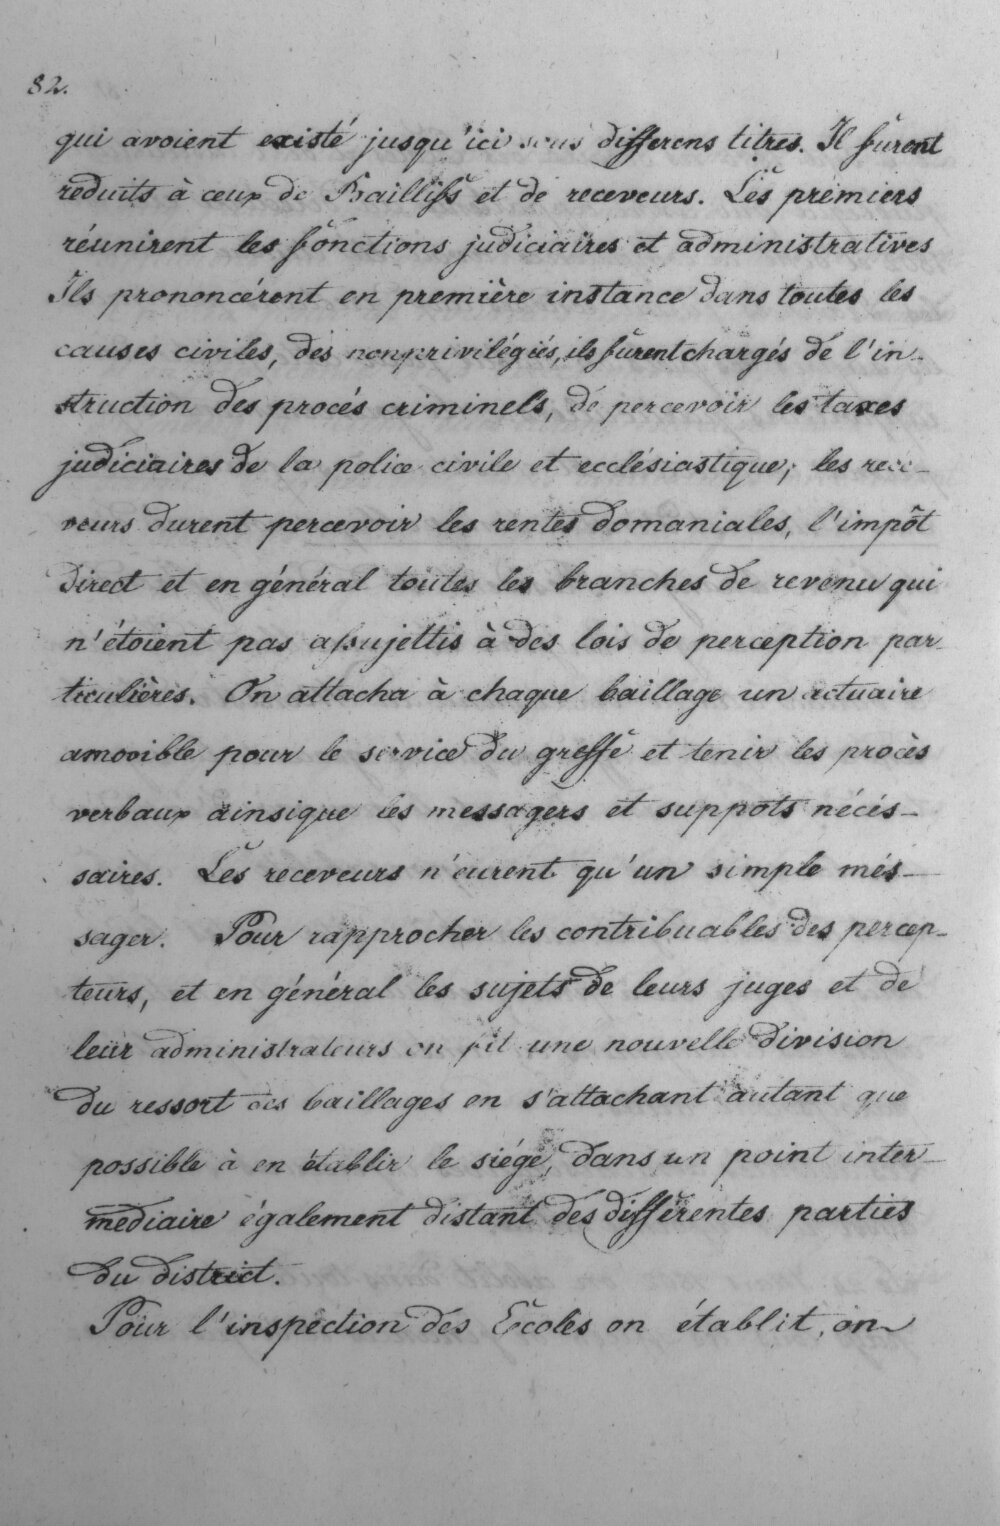 82.
qui avoient existé jusqu'ici sous differens titres. Il furent
réduits à ceux de Bailliss et de receveurs. Les premiers
réunirent les fonctions judiciaires et administratives
Ils prononcérent en première instance dans toutes les
causes civiles, des nonprivilégiés, ils furent chargés de l'in-
struction des procés criminels, de percevoir les taxes
judiciaires de la police civile et ecclésiastique; les rece-
veurs durent percevoir les rentes domaniales, l'impôt
direct et en général toutes les branches de revenu qui
n'étoient pas assujettis à des lois de perception par-
ticulières. On attacha à chaque baillage un actuaire
amovible pour le service du greffe et tenir les procès
verbaux ainsique les messagers et suppots nécés-
saires. Les receveurs n'eurent qu'un simple més-
sager. Pour rapprocher les contribuables des percep-
teurs, et en général les sujets de leurs juges et de
leur administrateurs on fit une nouvelle division
du ressort des baillages en s'attachant autant que
possible à en établir le siége, dans un point inter-
mediaire également distant des différentes parties
du district.
Pour l'inspection des Ecoles on établit, on